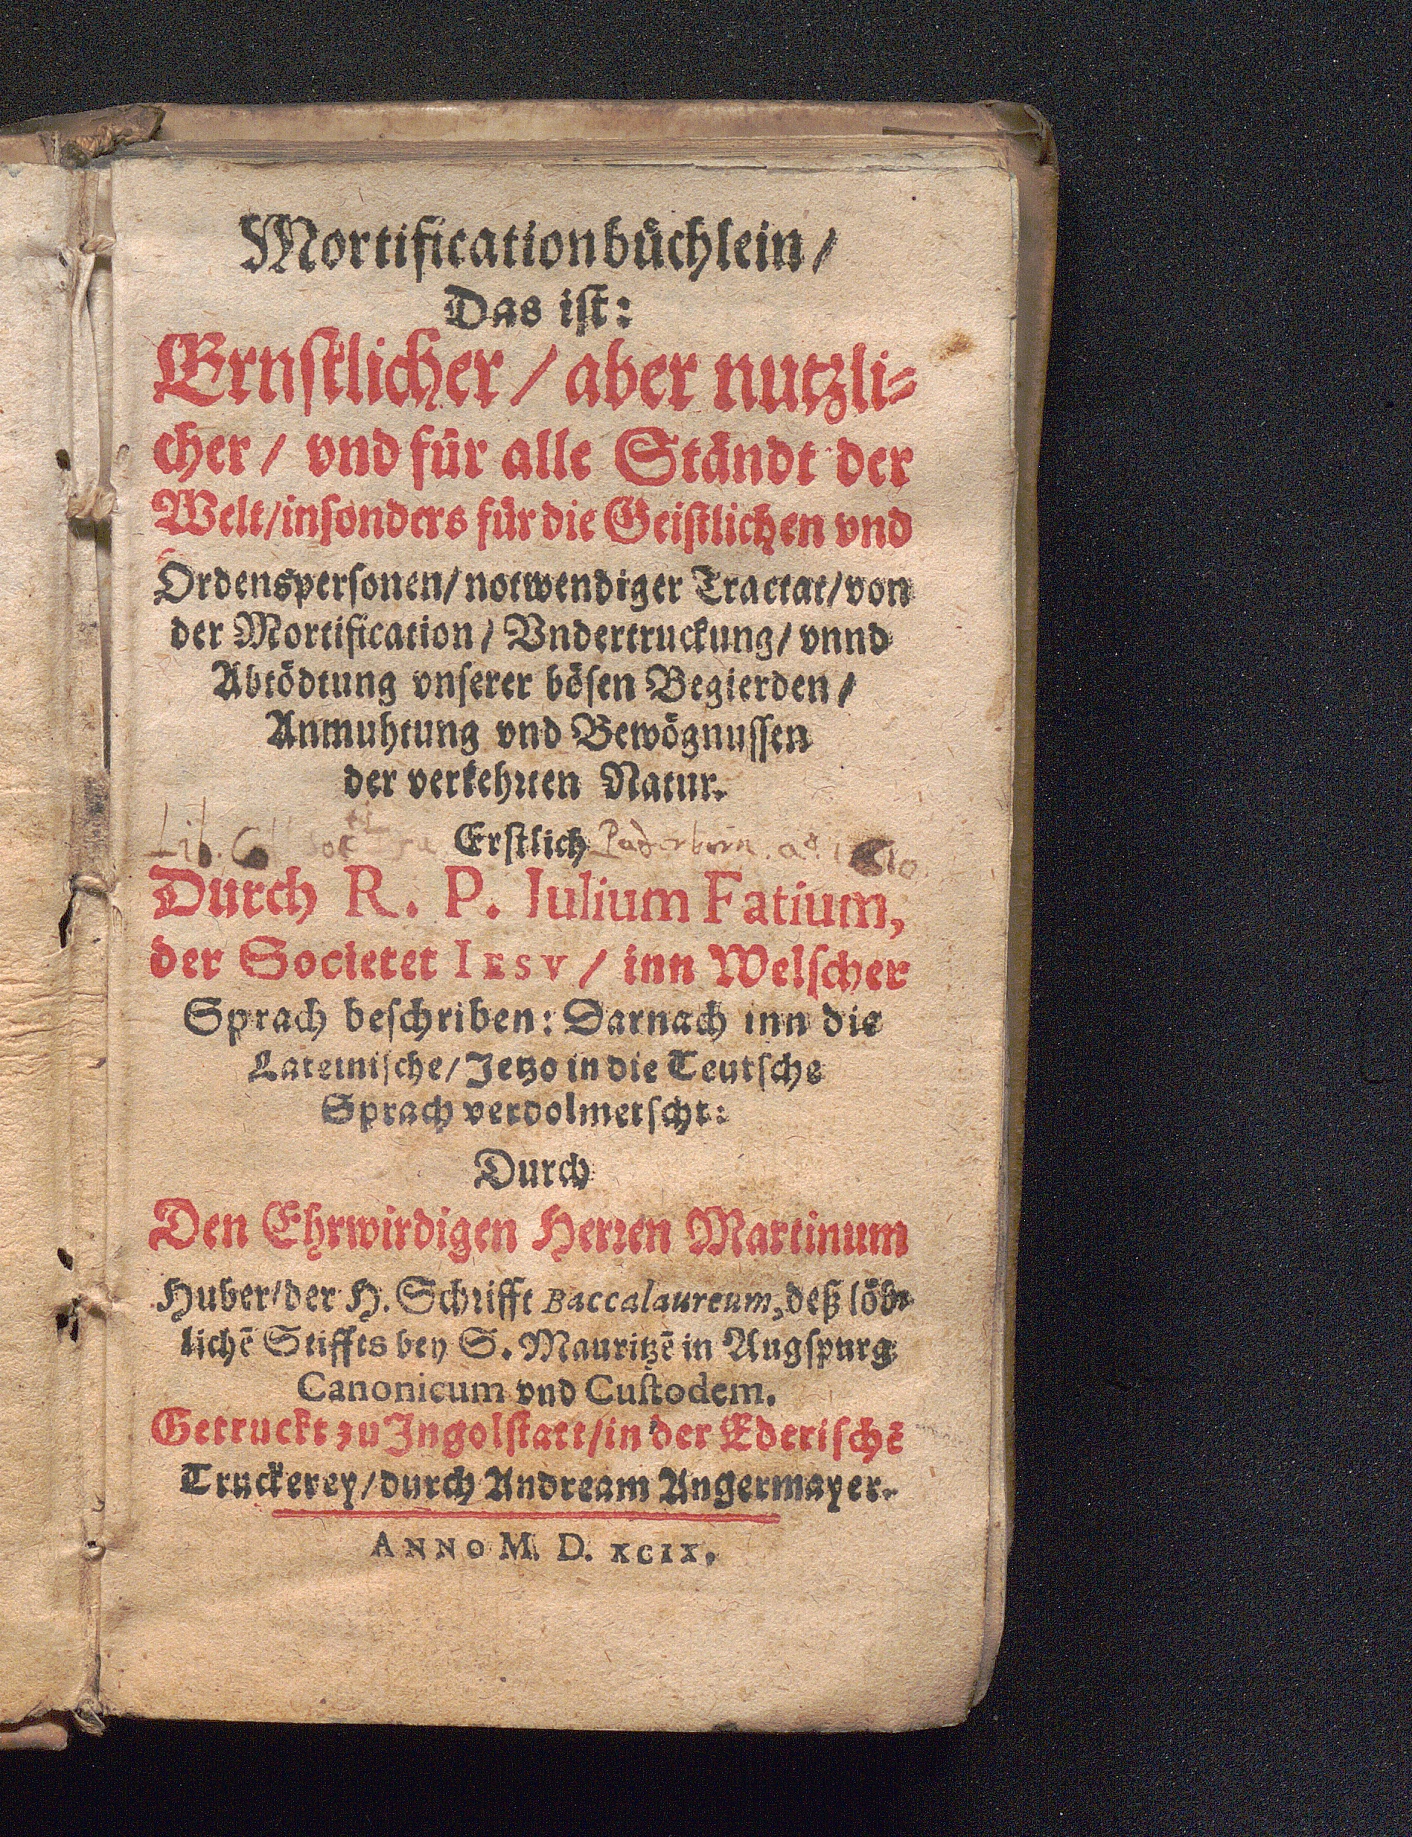 Mortificationbüchlein/
Das ist:
Ernstlicher / aber nutzli⸗
cher / vnd für alle Ständt der
Welt/insonders für die Geistlichen vnd
Ordenspersonen/notwendiger Tractat/von
der Mortification / Vndertruckung/ vnnd
Abtödtung vnserer bösen Begierden /
Anmuhtung vnd Bewögnussen
der verkehrten Natur.
Lib. Soc Erstlich Paderborn. aº.
Durch R. P. Iulium Fatium,
der Societet IESV / inn Welscher
Sprach beschriben: Darnach inn die
Lateinische/Jetzo in die Teutsche
Sprach verdolmetscht:
Durch
Den Ehrwirdigen Herren Martinum
Huber/der H. Schrifft Baccalaureum, deß löb⸗
lichẽ Stiffts bey S. Mauritzẽ in Augspurg
Canonicum vnd Custodem.
Getruckt zu Ingolstatt/in der Ederischẽ
Truckerey/durch Andream Angermayer.
ANNO M. D. XCIX.